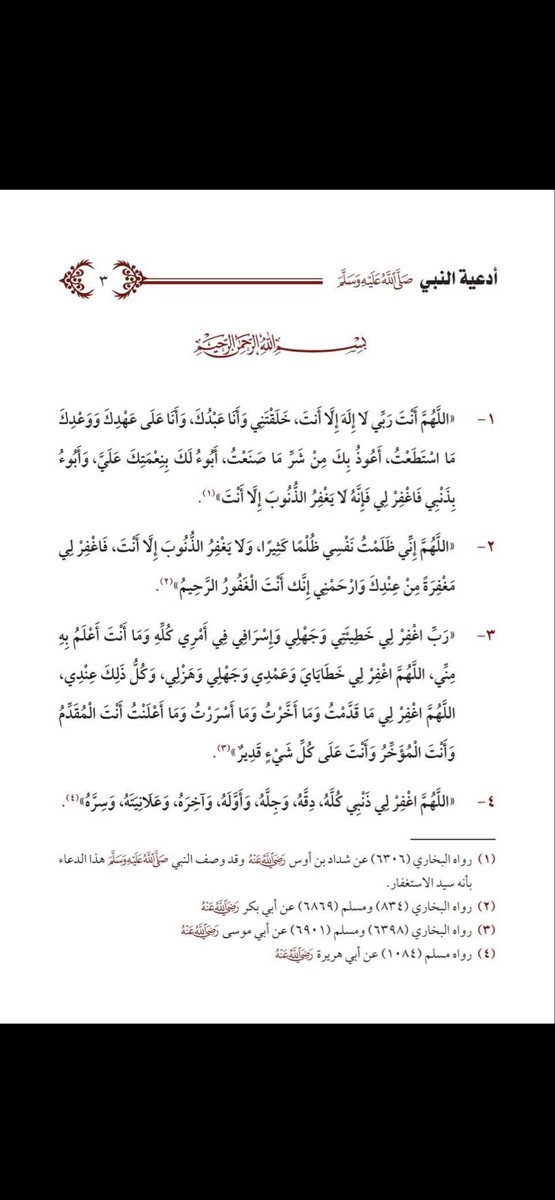 أدعية النبي صَلَّى اللَّهُ عَلَيْهِ وَسَلَّمَ ٣
بِسْمِ اللَّهِ الرَّحْمَنِ الرَّحِيمِ
١- «اللَّهُمَّ أَنْتَ رَبِّي لَا إِلَهَ إِلَّا أَنتَ، خَلَقْتَنِي وَأَنَا عَبْدُكَ، وَأَنَا عَلَى عَهْدِكَ وَوَعْدِكَ
مَا اسْتَطَعْتُ، أَعُوذُ بِكَ مِنْ شَرِّ مَا صَنَعْتُ، أَبُوءُ لَكَ بِنِعْمَتِكَ عَلَيَّ، وَأَبُوءُ
بِذَنْبِي فَاغْفِرْ لِي فَإِنَّهُ لَا يَغْفِرُ الذُّنُوبَ إِلَّا أَنْتَ»(١).
٢- «اللَّهُمَّ إِنِّي ظَلَمْتُ نَفْسِي ظُلْمًا كَثِيرًا، وَلَا يَغْفِرُ الذُّنُوبَ إِلَّا أَنْتَ، فَاغْفِرْ لِي
مَغْفِرَةً مِنْ عِنْدِكَ وَارْحَمْنِي إِنَّك أَنْتَ الْغَفُورُ الرَّحِيمُ»(٢).
٣- «رَبِّ اغْفِرْ لِي خَطِيئَتِي وَجَهْلِي وَإِسْرَافِي فِي أَمْرِي كُلِّهِ وَمَا أَنْتَ أَعْلَمُ بِهِ
مِنِّي، اللَّهُمَّ اغْفِرْ لِي خَطَايَايَ وَعَمْدِي وَجَهْلِي وَهَزْلِي، وَكُلُّ ذَلِكَ عِنْدِي،
اللَّهُمَّ اغْفِرْ لِي مَا قَدَّمْتُ وَمَا أَخَّرْتُ وَمَا أَسْرَرْتُ وَمَا أَعْلَنْتُ أَنْتَ الْمُقَدِّمُ
وَأَنْتَ الْمُؤَخِّرُ وَأَنْتَ عَلَى كُلِّ شَيْءٍ قَدِيرٌ»(٣).
٤- «اللَّهُمَّ اغْفِرْ لِي ذَنْبِي كُلَّهُ، دِقَّهُ، وَجِلَّهُ، وَأَوَّلَهُ، وَآخِرَهُ، وَعَلَانِيَتَهُ، وَسِرَّهُ»(٤).
(١) رواه البخاري (٦٣٠٦) عن شداد بن أوس رَضِيَ اللَّهُ عَنْهُ وقد وصف النبي صَلَّى اللَّهُ عَلَيْهِ وَسَلَّمَ هذا الدعاء
بأنه سيد الاستغفار.
(٢) رواه البخاري (٨٣٤) ومسلم (٦٨٦٩) عن أبي بكر رَضِيَ اللَّهُ عَنْهُ
(٣) رواه البخاري (٦٣٩٨) ومسلم (٦٩٠١) عن أبي موسى رَضِيَ اللَّهُ عَنْهُ
(٤) رواه مسلم (١٠٨٤) عن أبي هريرة رَضِيَ اللَّهُ عَنْهُ